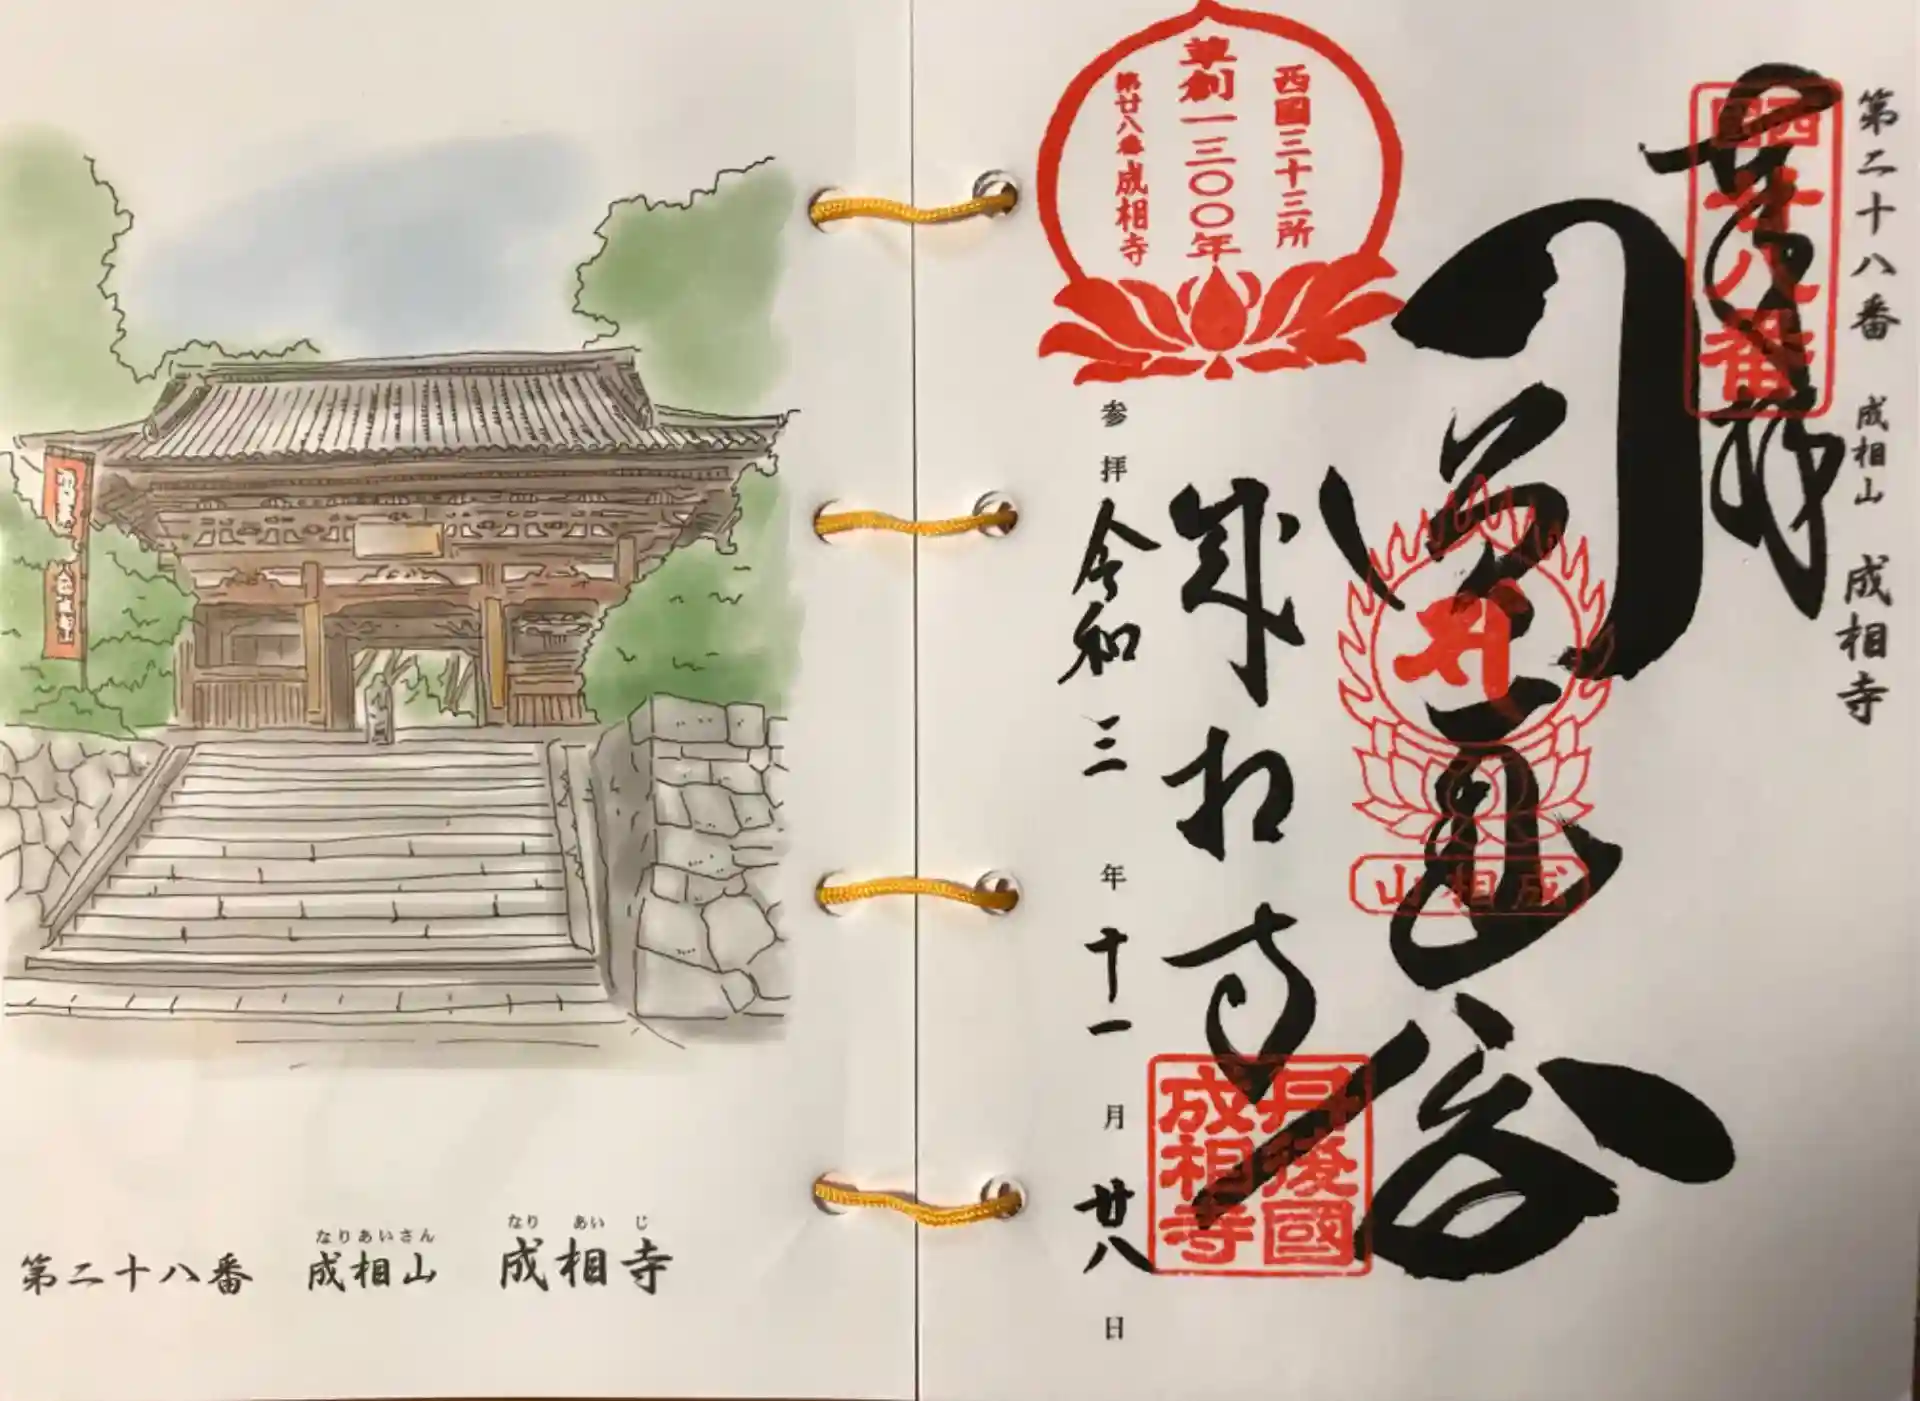 第二十八番 成相山 成相寺
奉拝
西国
廿八番
成相山
成相寺
丹後國
成相寺
西國三十三所
草創一三〇〇年
第廿八番成相寺
参拝 令和三年十一月廿八日
なりあいさん なりあいじ
第二十八番 成相山 成相寺